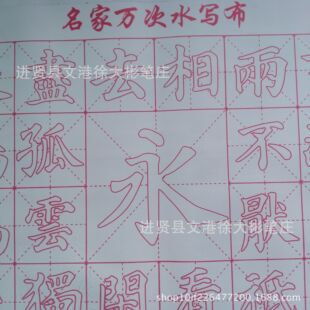 名家万次水写布
盡去相兩
孤永不
雲厭
獨閑看
进贤县文港徐大彬笔庄
进贤县文港徐大彬笔庄
shop10d226477200.1688.com